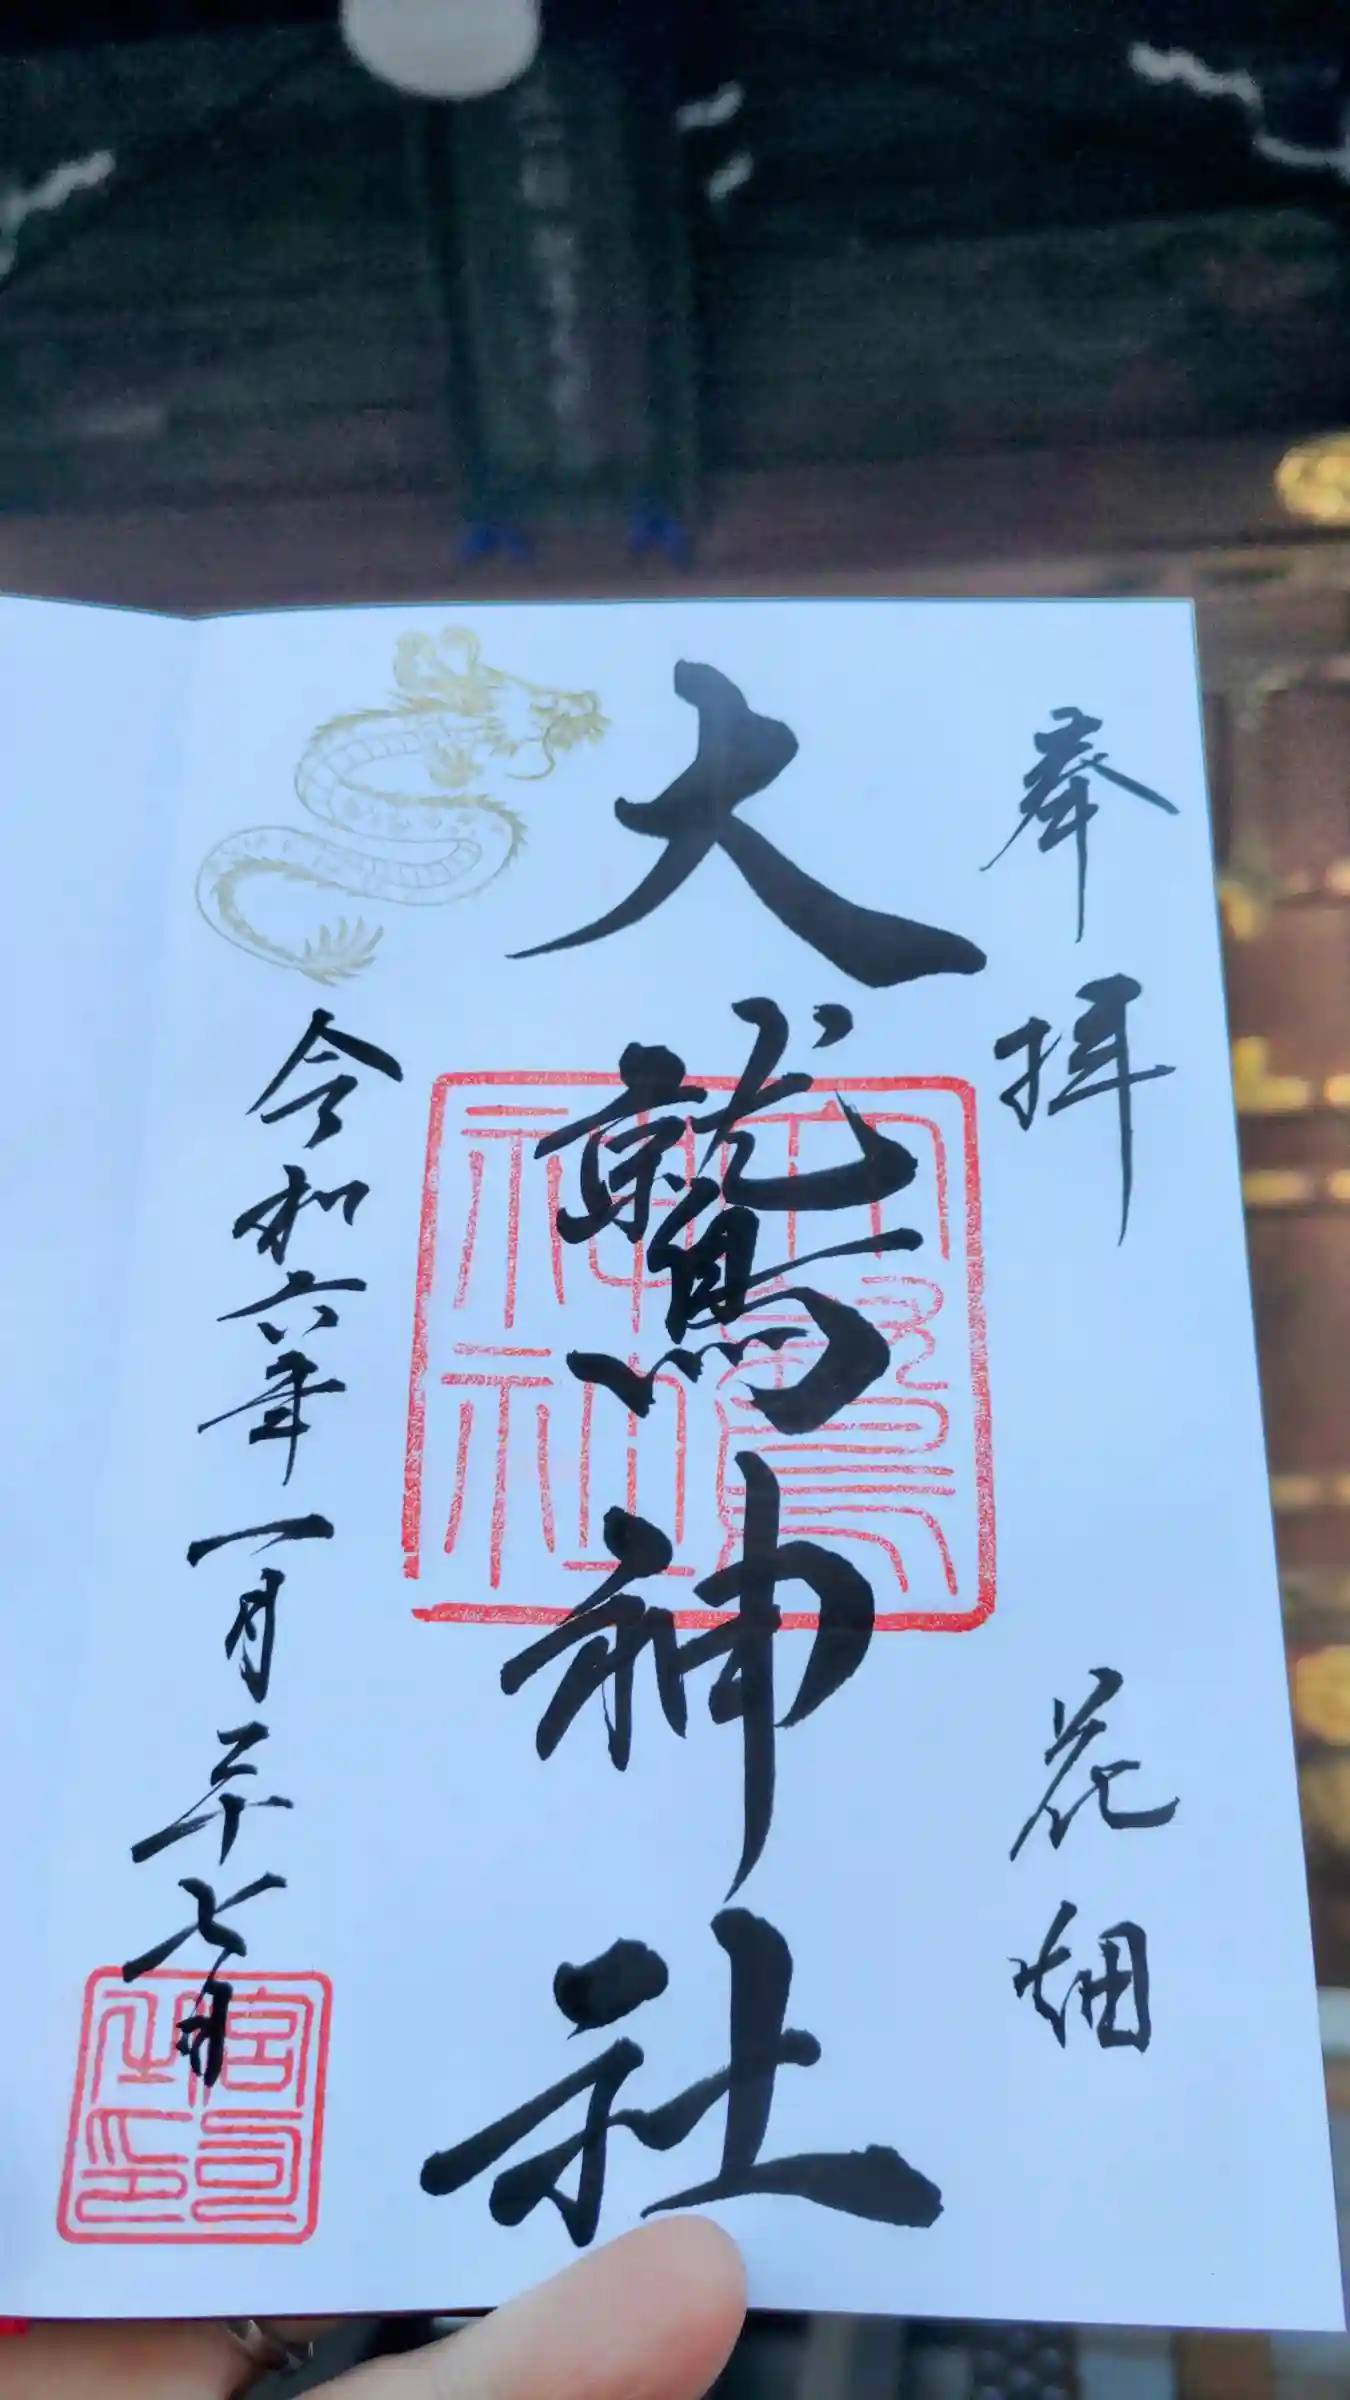 奉拝 花畑
大鷲神社
令和六年一月二十七日
大鷲神社
宮司之印